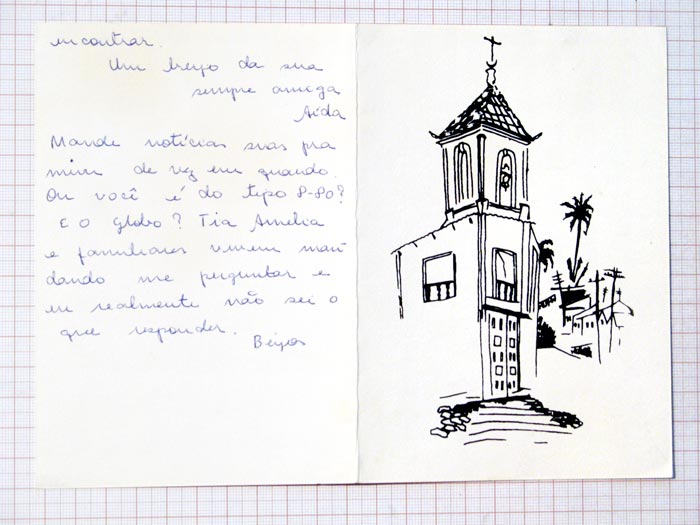 encontrar.
Um beijo da sua
sempre amiga
Aida
Mande notícias suas pra
mim de vez em quando.
Ou você é do tipo 8-80?
E o Globo? Tia Amélia
e familiares vivem man
dando me perguntar e
eu realmente não sei o
que responder.
Beijos